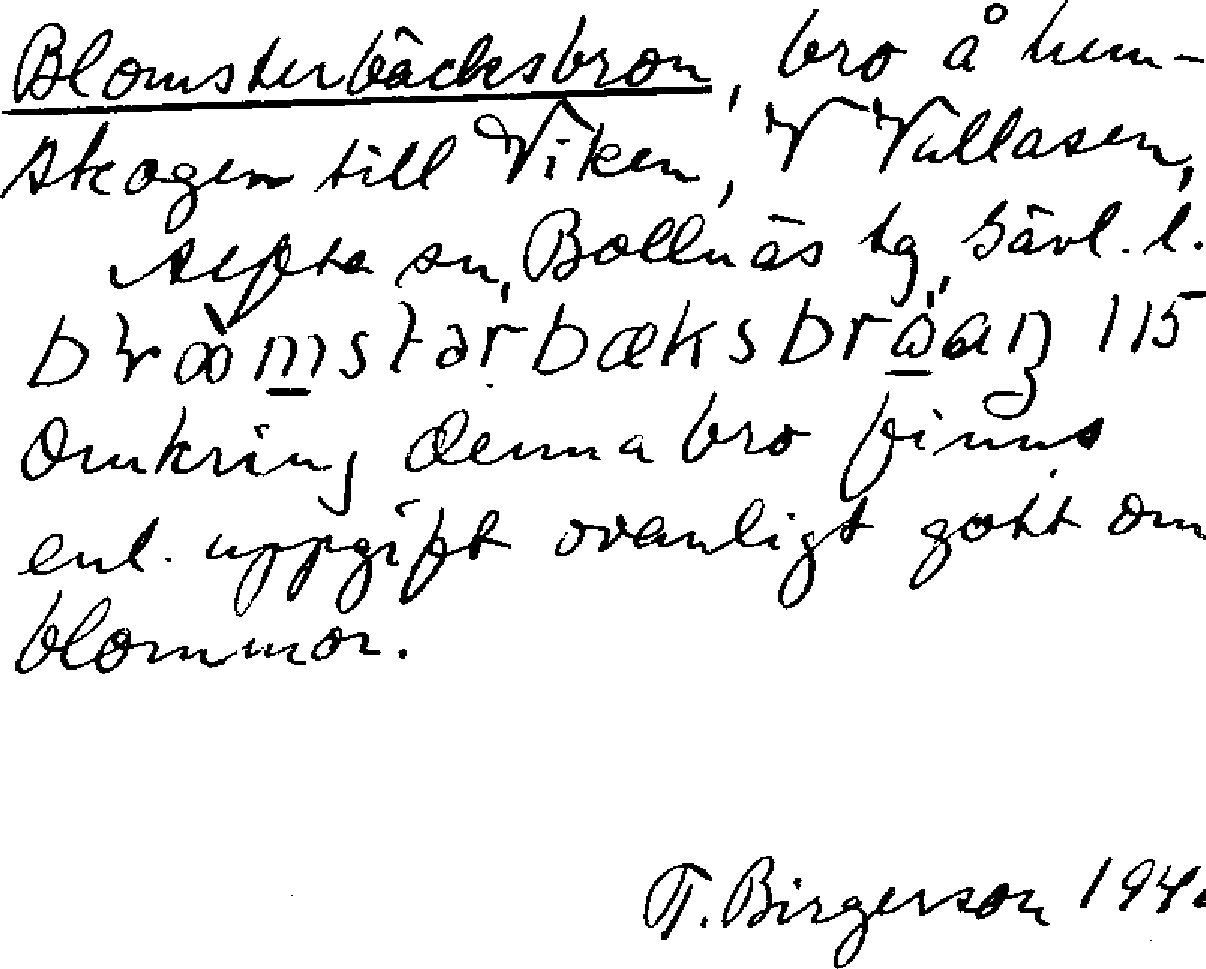 Blomsterbäcksbron, bro å hem-
skogen till Viken, V Vallasen,
Alfta sn, Bollnäs tg, Gävl. l.
115
Omkring denna bro finns
enl. uppgift ovanligt gott om
blommor.
T. Birgerson